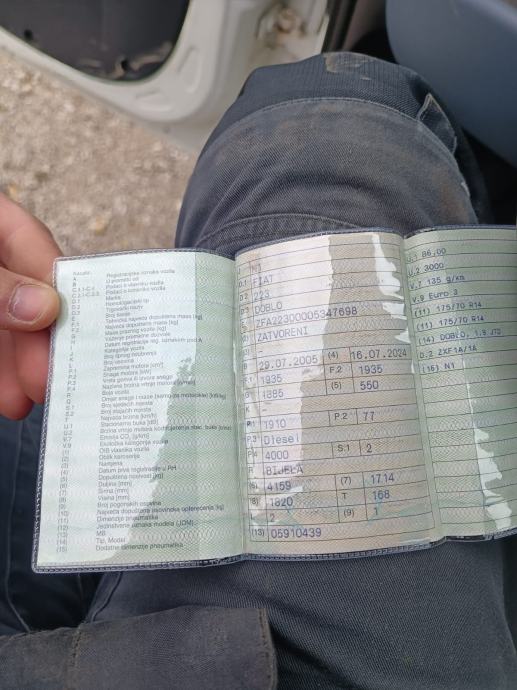 A Registracijska oznaka vozila
B U prometu od
C.1.1-C.4 Podaci o vlasniku vozila
C.3.1-C.3.3 Podaci o korisniku vozila
D.1 Marka
D.2 Homologacijski tip
D.3 Trgovački naziv
E Broj šasije
F.1 Tehnička najveća dopuštena masa [kg]
F.2 Najveća dopuštena masa [kg]
G Masa praznog vozila [kg]
H Važenje prometne dozvole
I Datum registracije vozila
J Kategorija vozila
K Broj tipnog odobrenja
L Broj osovina
P.1 Zapremina motora [cm³]
P.2 Snaga motora [kW]
P.3 Vrsta goriva ili izvora snage
P.4 Nazivna brzina vrtnje motora
R Boja vozila
S.1 Broj sjedećih mjesta
S.2 Broj stajaćih mjesta
T Najveća brzina [km/h]
U.1 Stacionarna buka [dB]
V.7 Emisija CO₂ [g/km]
V.9 Ekološka kategorija vozila
(1) OIB vlasnika vozila
(2) Oblik karoserije
(3) Namjena
(4) Datum prve registracije u RH
(5) Dopuštena nosivost [kg]
(6) Duljina [mm]
(7) Širina [mm]
(8) Visina [mm]
(9) Broj pogonskih osovina
(10) Najveća dopuštena osovinska opterećenja [kg]
(11) Dimenzije pneumatika
(12) Jedinstvena oznaka modela (JOM)
(13) MB
(14) Tip, Model
(15) Dodatne dimenzije pneumatika
J N1
D.1 FIAT
D.2 223
D.3 DOBLO
E ZFA22300005347698
(2) ZATVORENI
B 29.07.2005 (4) 16.07.2024
F.1 1935 F.2 1935
G 1385 (5) 550
K
P.1 1910 P.2 77
P.3 Diesel
P.4 4000 S.1 2
R BIJELA
(6) 4159 (7) 1714
(8) 1820 T 168
L 2 (9) 1
(13) 05910439
U.1 86,00
U.2 3000
V.7 135 g/km
V.9 Euro 3
(11) 175/70 R14
(11) 175/70 R14
(14) DOBLO, 1.9 JTD
D.2 ZXF1A/1A
(16) N1